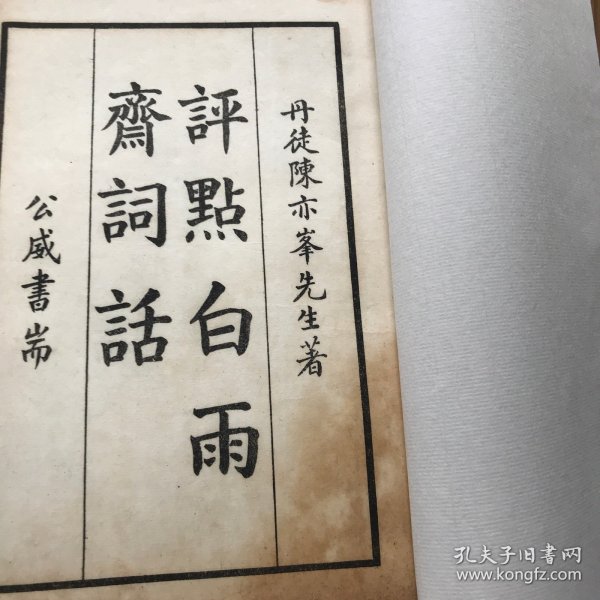 丹徒陳亦峯先生著
評點白雨
齋詞話
公威書耑
孔夫子旧书网
www.kongfz.com